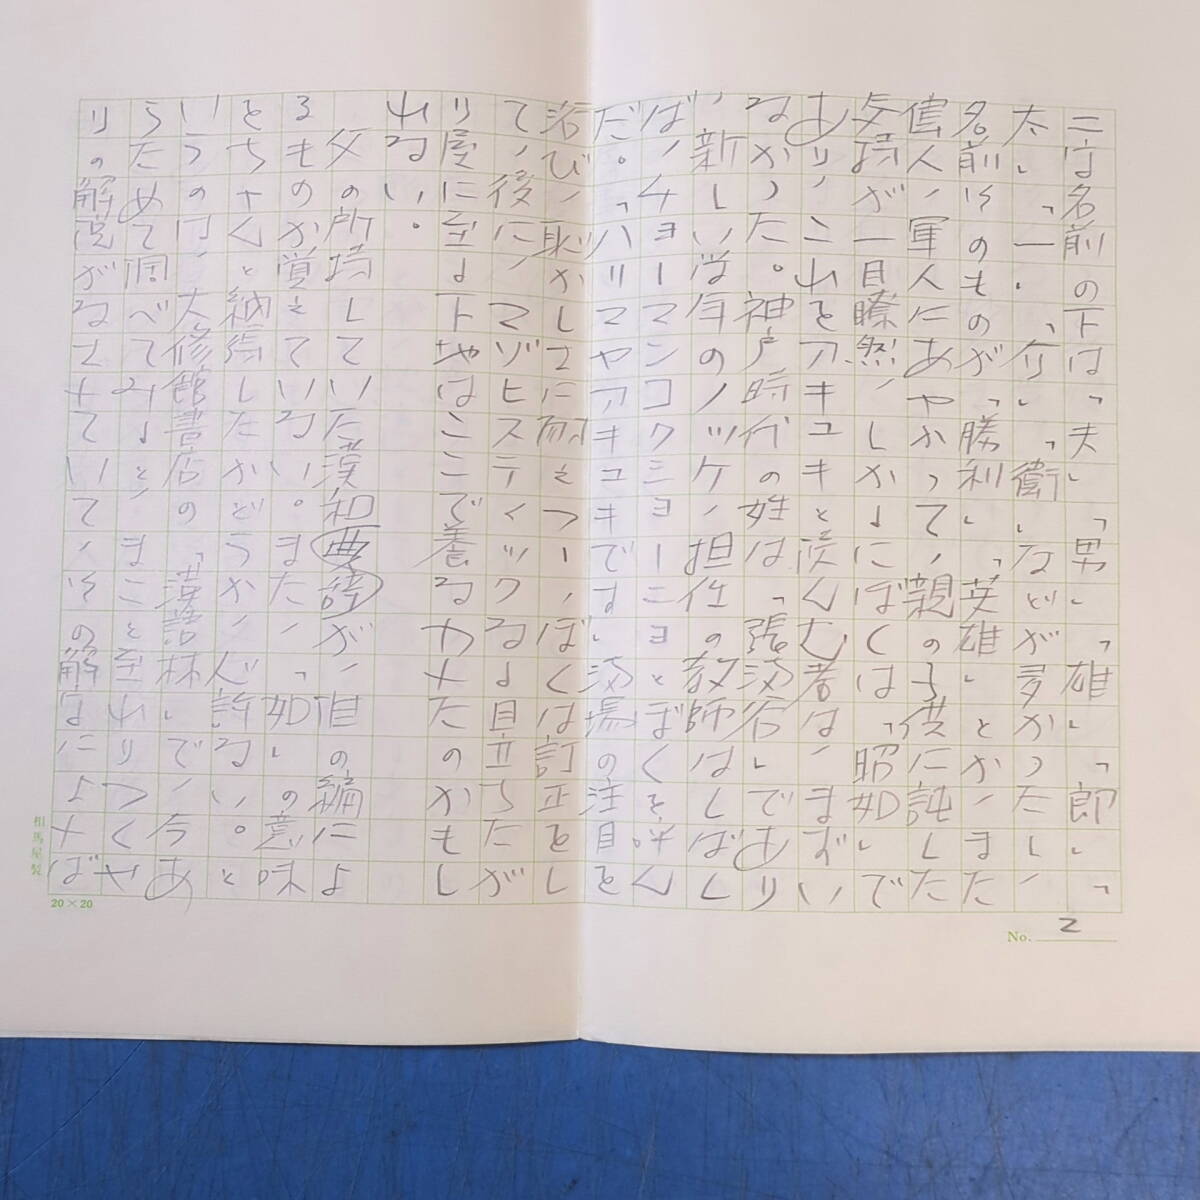 二字名前の下は「夫」「男」「雄」「郎」「
太」「一」「介」「衛」などが多かったし、
名前そのものが「勝利」「英雄」とか、また
偉人、軍人にあやかって、親の子供に託した
気持が一目瞭然、しかるにぼくは「昭如」で
あり、これをアキユキと読む者は、まずい
なかった。神戸時代の姓は「張満谷」であり
、新しい学年のノッケ、担任の教師はしばし
ば、チョーマンコクショーニョとぼくを呼ん
だ。「ハリマヤアキユキです」満場の注目を
浴び、恥かしさに耐えつつ、ぼくは訂正をし
て、後に、マゾヒスティックなる目立ちたが
り屋に至る下地はここで養なわれたのかもし
れない。
父の所持していた漢和辞典が、誰の編によ
るものか覚えていない。また、「如」の意味
をちゃんと納得したかどうか、心許ない。と
いうのは、大修館書店の「漢語林」で、今あ
らためて調べてみると、まこと至れりつくせ
りの解説がなされていて、その解字によれば
No. 2
相馬屋製
20×20